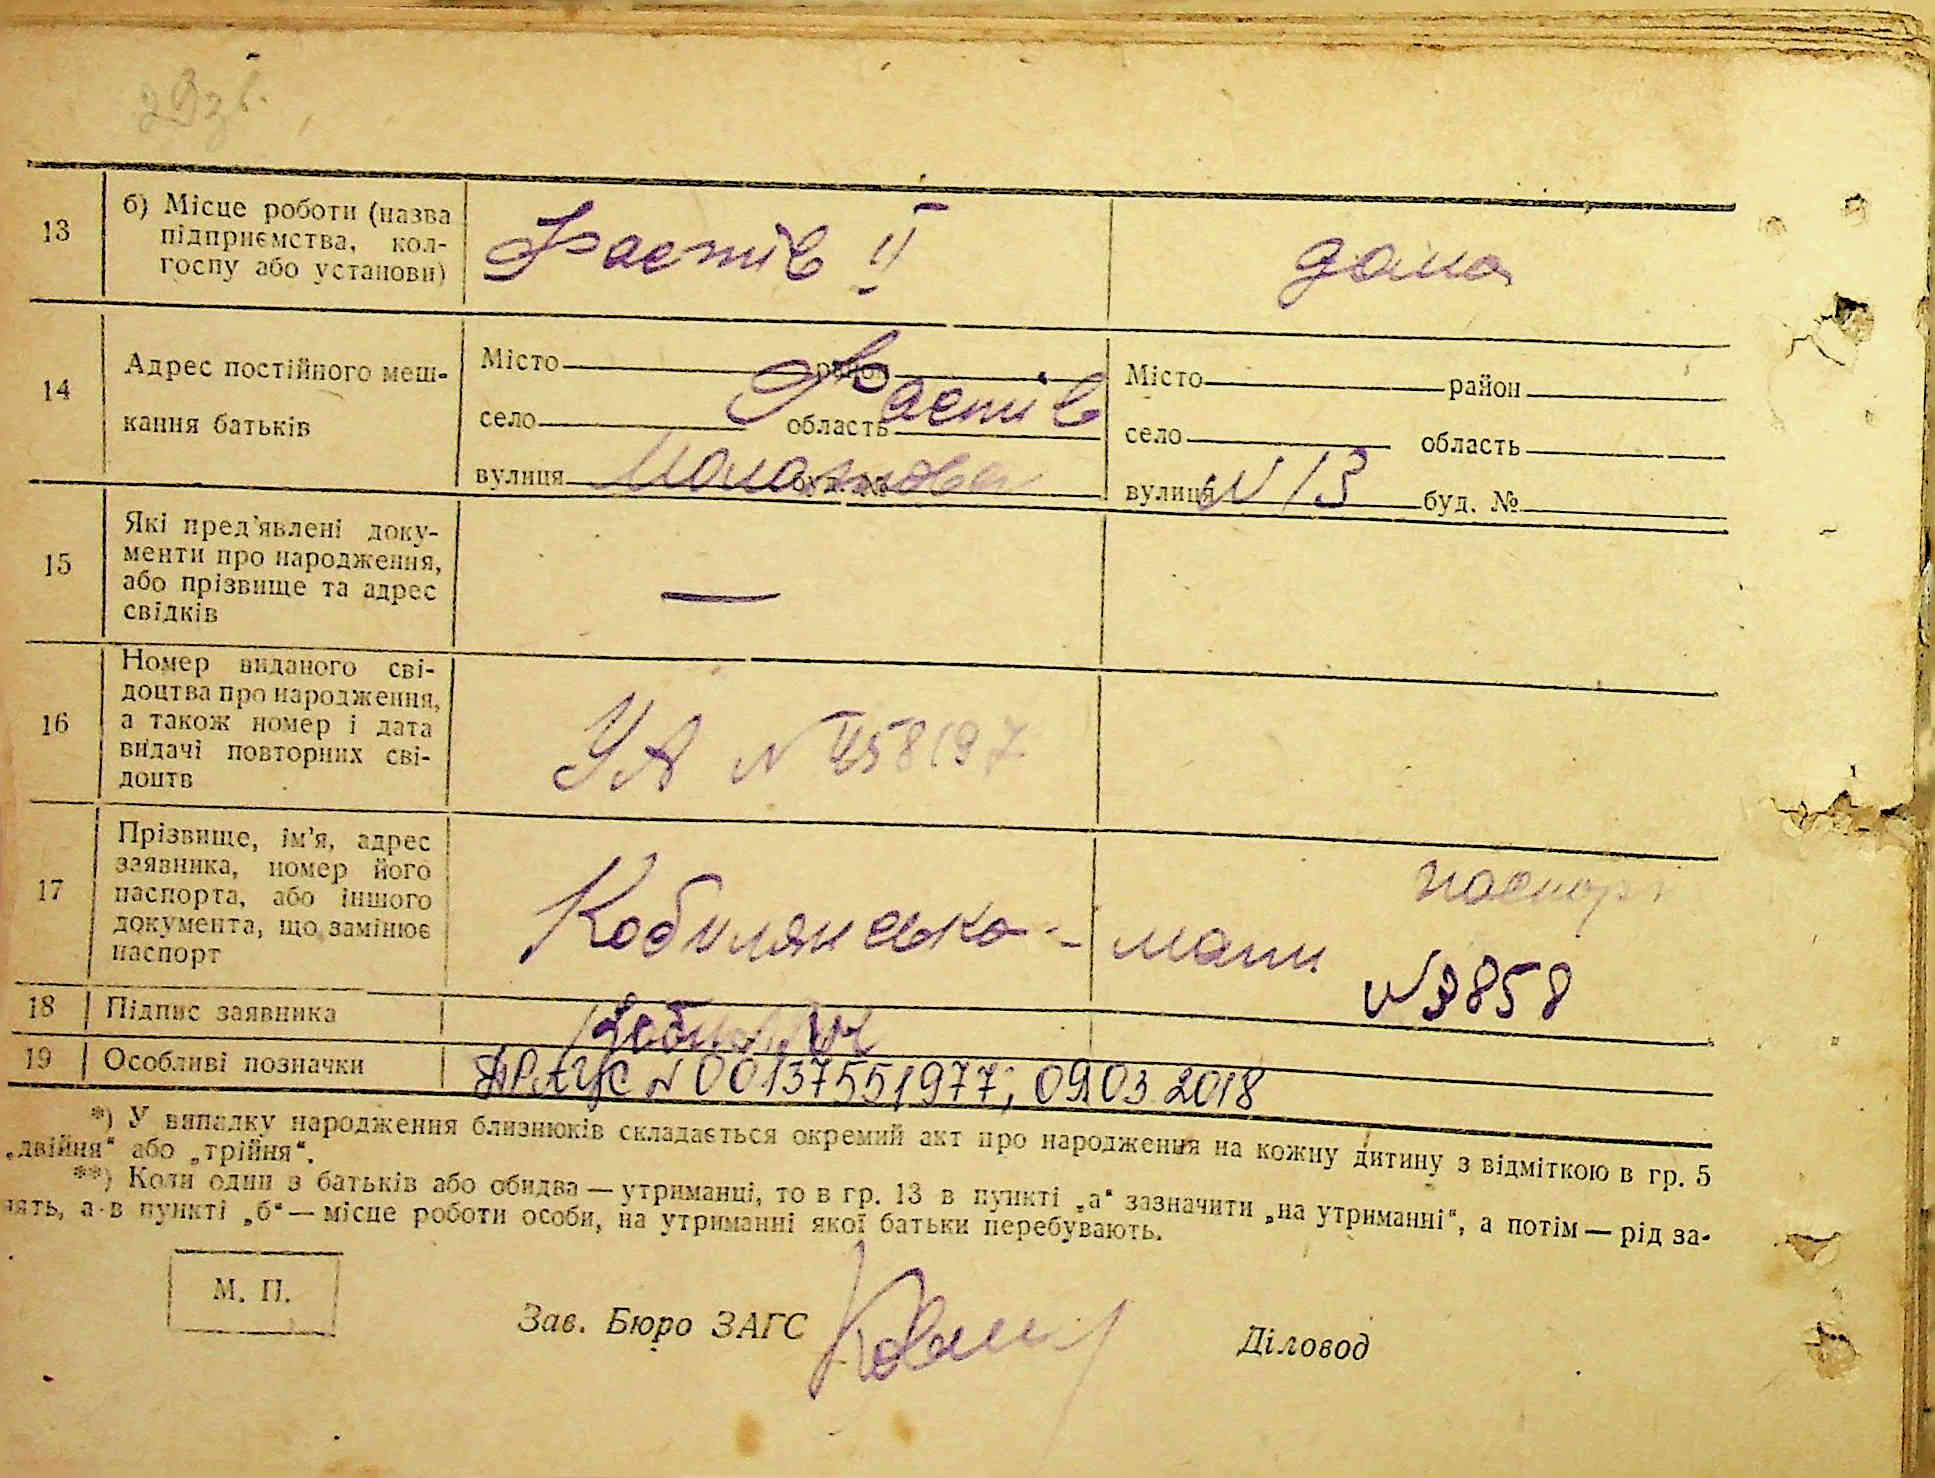 29зв.
13
б) Місце роботи (назва
підприємства, кол-
госпу або установи)
Фастів II
дома
14
Адрес постійного меш-
кання батьків
Місто район
Фастів
село область
вулиця
Місто район
село область
вулиця N 13 буд. №
15
Які пред'явлені доку-
менти про народження,
або прізвище та адрес
свідків
—
16
Номер виданого сві-
доцтва про народження,
а також номер і дата
видачі повторних сві-
доцтв
УА N 458197
17
Прізвище, ім'я, адрес
заявника, номер його
паспорта, або іншого
документа, що замінює
паспорт
Кобилянська - мати
паспорт
N 3858
18
Підпис заявника
19
Особливі позначки
ДРАЦС N 00137551977; 09.03 2018
*) У випадку народження близнюків складається окремий акт про народження на кожну дитину з відміткою в гр. 5
„двійня“ або „трійня“.
**) Коли один з батьків або обидва — утриманці, то в гр. 13 в пункті „а“ зазначити „на утриманні“, а потім — рід за-
нять, а в пункті „б“ — місце роботи особи, на утриманні якої батьки перебувають.
М. П.
Зав. Бюро ЗАГС
Діловод